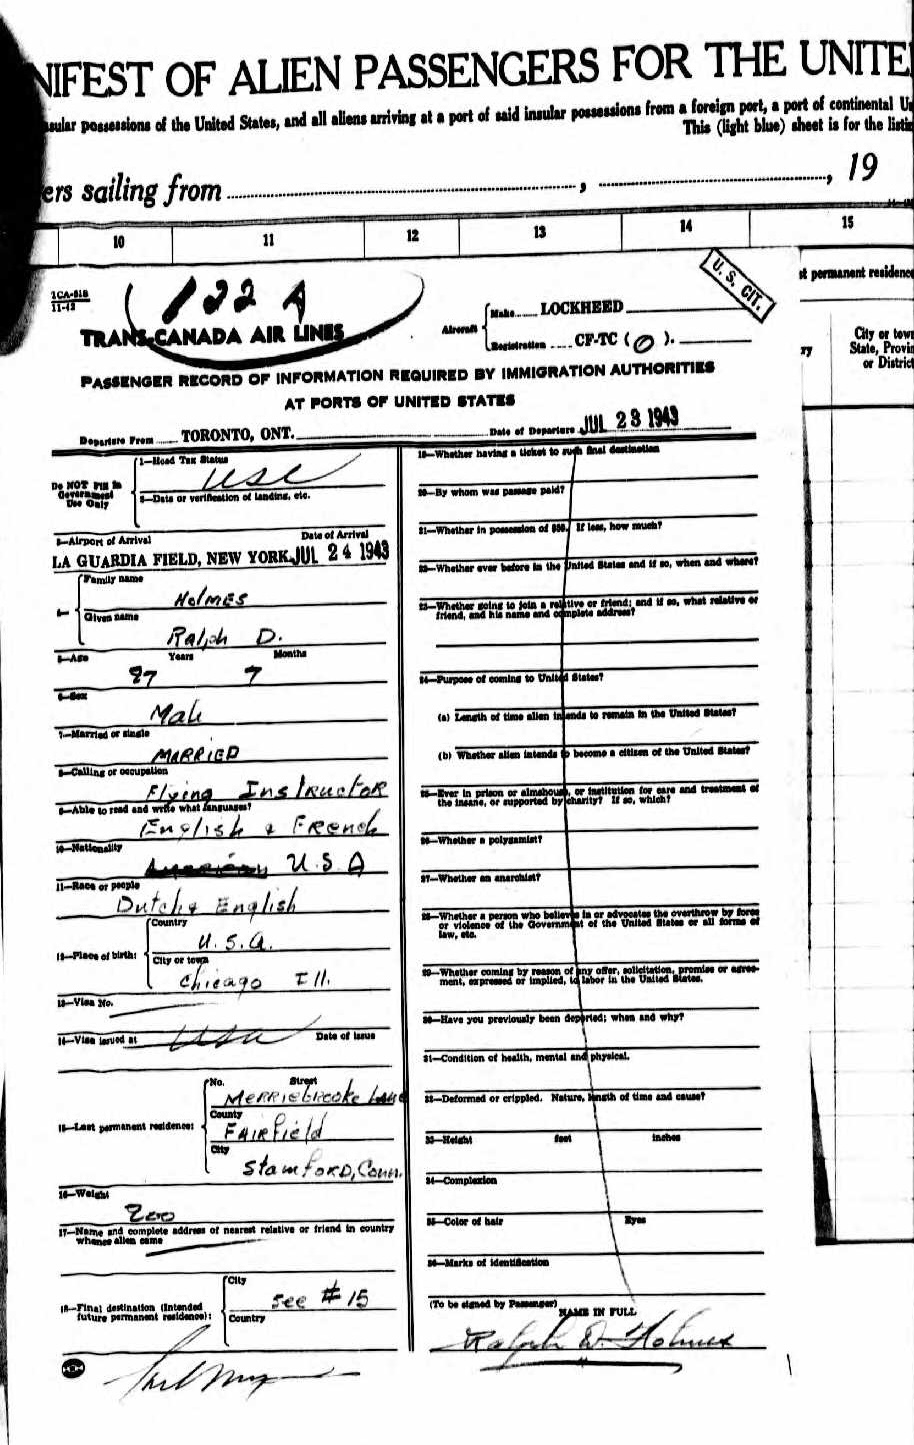 NIFEST OF ALIEN PASSENGERS FOR THE UNITE
sular possessions of the United States, and all aliens arriving at a port of said insular possessions from a foreign port, a port of continental U
This (light blue) sheet is for the listi
ers sailing from , , 19
10 11 12 13 14 15
U. S. CIT.
st permanent residence
City or tow
State, Provin
or District
ry
11-42
122 A
TRANS-CANADA AIR LINES
Aircraft
Make LOCKHEED
Registration CF-TC (O).
PASSENGER RECORD OF INFORMATION REQUIRED BY IMMIGRATION AUTHORITIES
AT PORTS OF UNITED STATES
Departure From TORONTO, ONT. Date of Departure JUL 23 1943
Do NOT Fill in
Government
Use Only
1—Head Tax Status
USC
2—Date or verification of landing, etc.
3—Airport of Arrival Date of Arrival
LA GUARDIA FIELD, NEW YORK. JUL 24 1943
4—
Family name
HOLMES
Given name
Ralph D.
5—Age Years Months
27 7
6—Sex
Male
7—Married or single
MARRIED
8—Calling or occupation
Flying Instructor
9—Able to read and write what languages?
English & French
10—Nationality
American U.S.A
11—Race or people
Dutch & English
12—Place of birth:
Country
U.S.A.
City or town
Chicago Ill.
13—Visa No.
14—Visa issued at USA Date of issue
15—Last permanent residence:
No. Street
Merriebrooke Lane
County
FAIRField
City
Stamford, Conn.
16—Weight
200
17—Name and complete address of nearest relative or friend in country
whence alien came
18—Final destination (Intended
future permanent residence):
City
See #15
Country
19—Whether having a ticket to such final destination
20—By whom was passage paid?
21—Whether in possession of $50. If less, how much?
22—Whether ever before in the United States and if so, when and where?
23—Whether going to join a relative or friend; and if so, what relative or
friend, and his name and complete address?
24—Purpose of coming to United States?
(a) Length of time alien intends to remain in the United States?
(b) Whether alien intends to become a citizen of the United States?
25—Ever in prison or almshouse, or institution for care and treatment of
the insane, or supported by charity? If so, which?
26—Whether a polygamist?
27—Whether an anarchist?
28—Whether a person who believes in or advocates the overthrow by force
or violence of the Government of the United States or all forms of
law, etc.
29—Whether coming by reason of any offer, solicitation, promise or agree-
ment, expressed or implied, to labor in the United States.
30—Have you previously been deported; when and why?
31—Condition of health, mental and physical.
32—Deformed or crippled. Nature, length of time and cause?
33—Height feet inches
34—Complexion
35—Color of hair Eyes
36—Marks of identification
(To be signed by Passenger) NAME IN FULL
Ralph D. Holmes